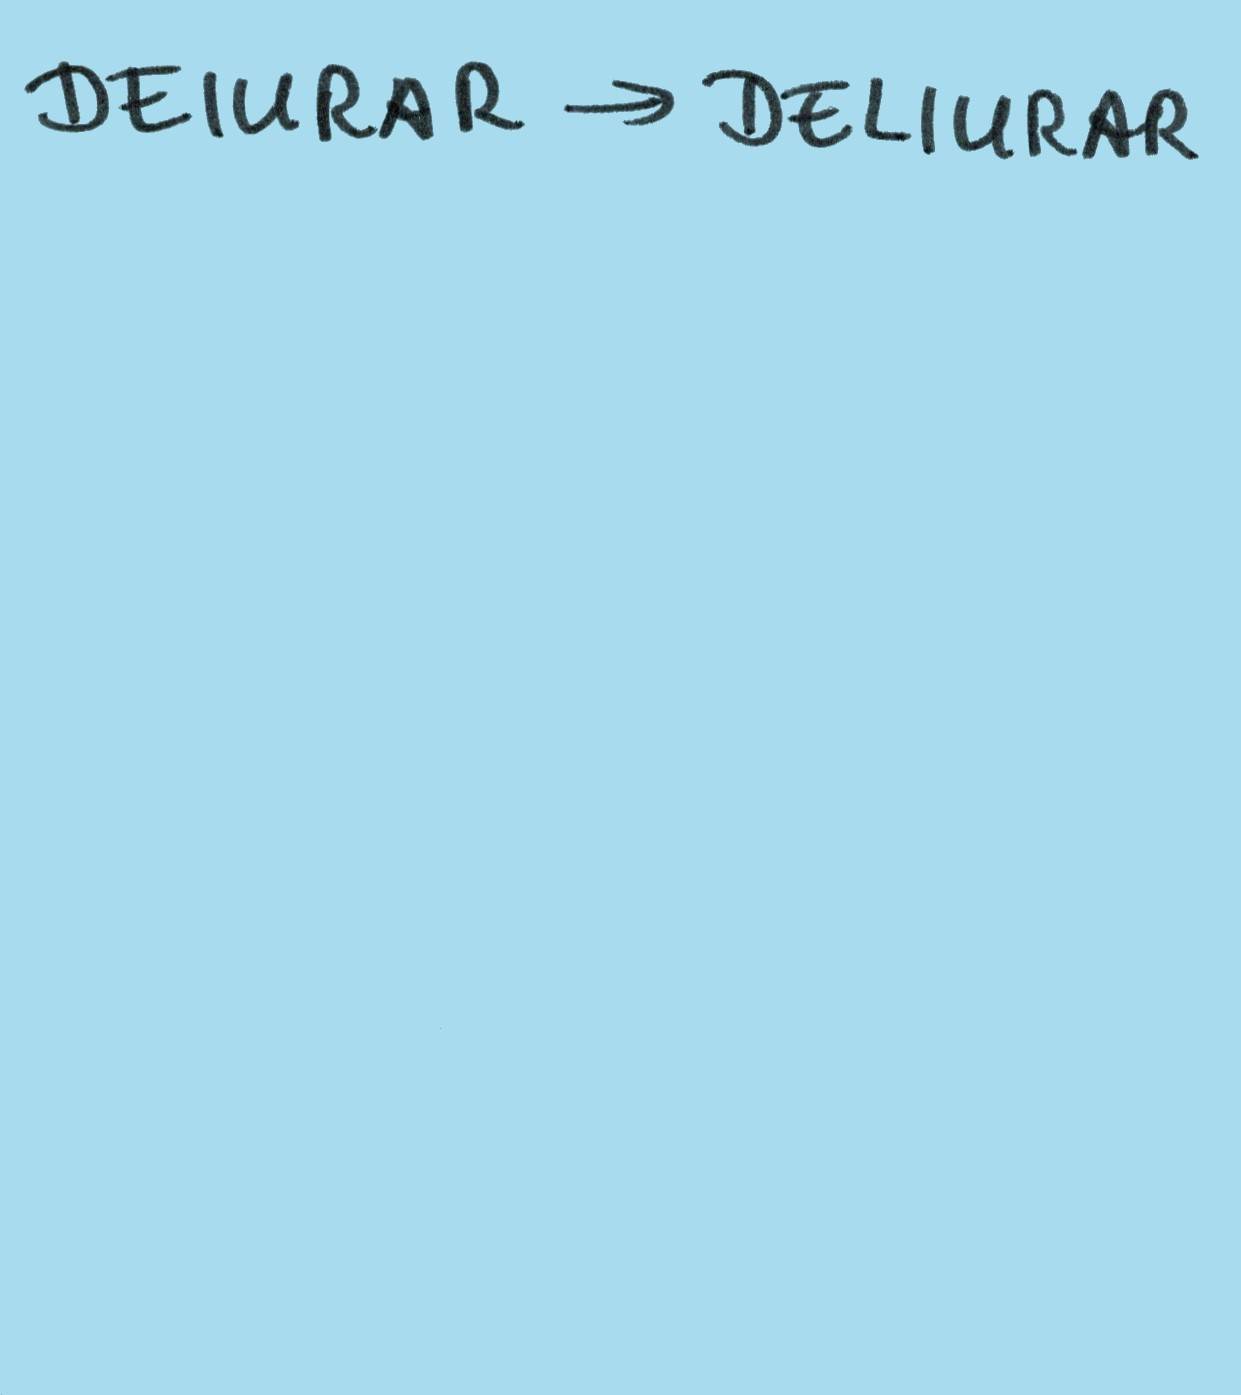 DEIURAR → DELIURAR